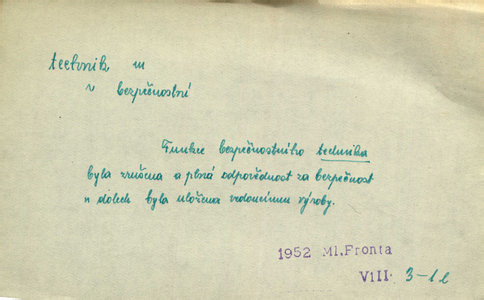 technik m
v bezpečnostní
Funkce bezpečnostního technika
byla zrušena a plná odpovědnost za bezpečnost
v dolech byla uložena vedoucímu výroby.
1952 Ml.Fronta
VIII. 3-1